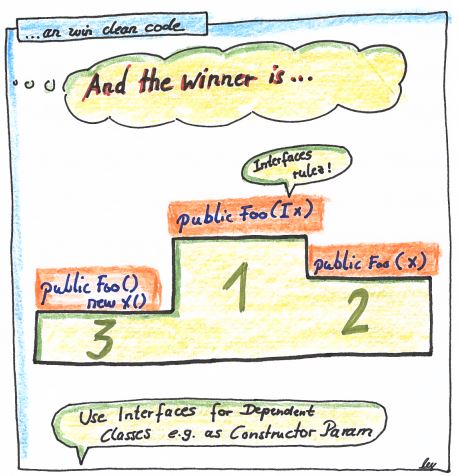 ...an win clean code
And the winner is...
Interfaces
rulez!
public Foo(Ix)
public Foo (x)
public Foo()
new X()
1
2
3
Use Interfaces for Dependent
Classes e.g. as Constructor Param